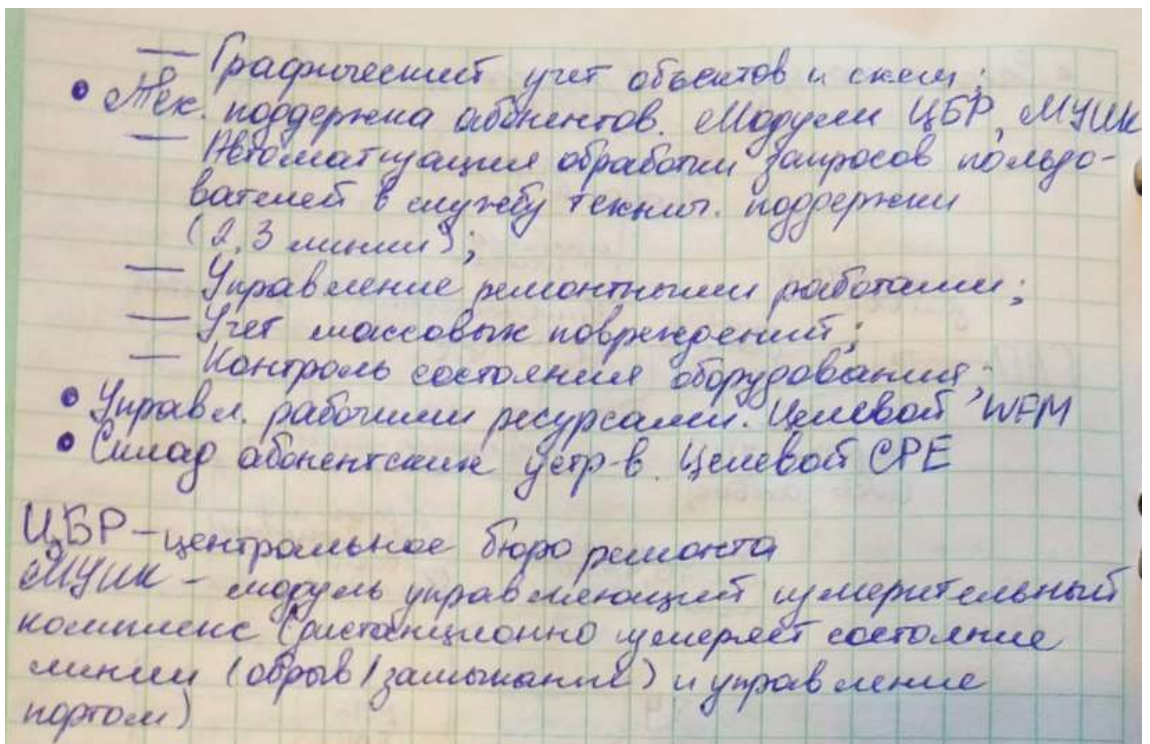 — Графический учет объектов и схем;
• Тех. поддержка абонентов. Модули ЦБР, МУИК
— Автоматизация обработки запросов пользо-
вателей в службу технич. поддержки
(2,3 линии);
— Управление ремонтными работами;
— Учет массовых повреждений;
— Контроль состояния оборудования;
• Управл. рабочими ресурсами. Целевой WFM
• Склад абонентских устр-в. Целевой CPE
ЦБР – центральное бюро ремонта
МУИК – модуль управляющий измерительный
комплекс (дистанционно измеряет состояние
линии (обрыв/замыкание) и управление
портом)